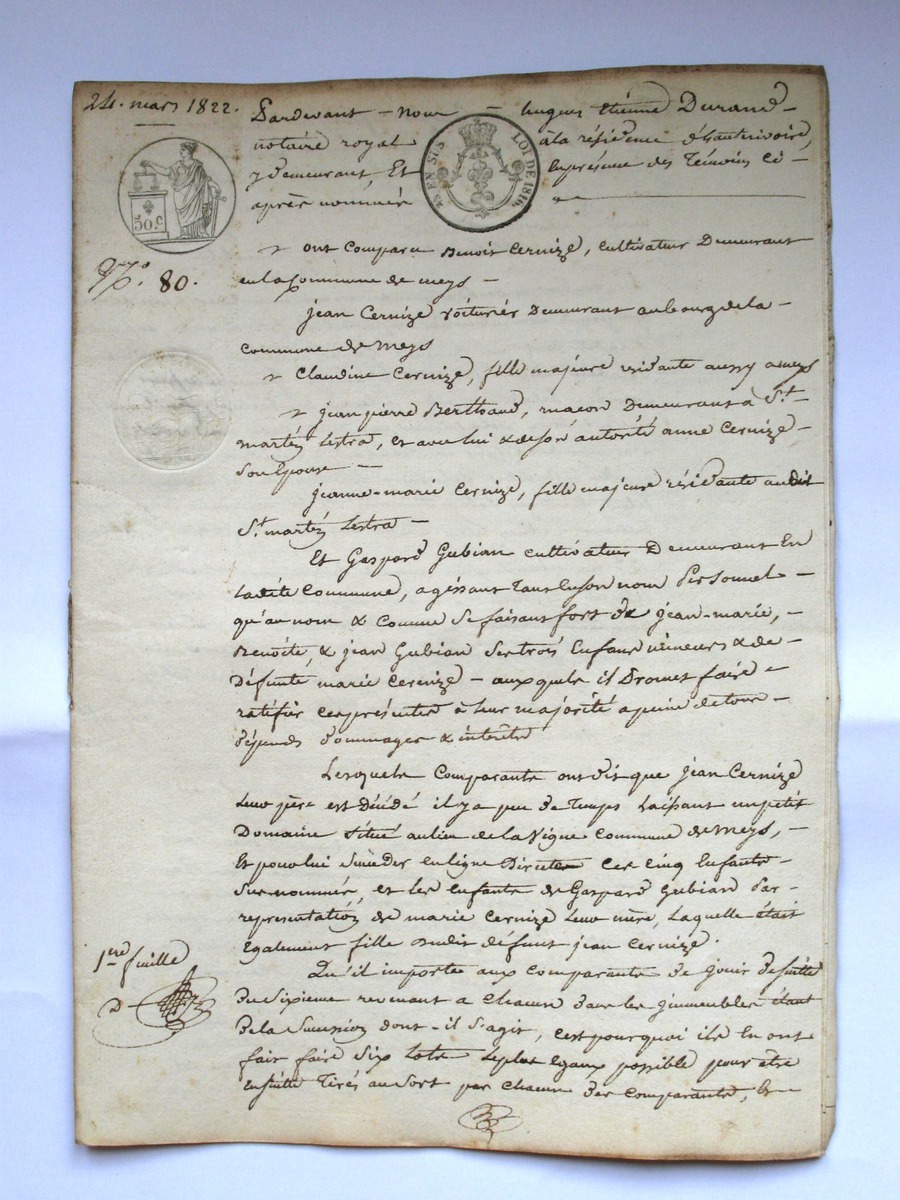 24. mars 1822.
Pardevant - Nous - hugues Etienne Durand -
notaire royal à la résidence d'hauterivoire,
y demeurant, Et En présence des Témoins Ci -
après nommés
EN SUS LOI DE 1816.
50.C
N.º 80.
ont Comparu Benoit Cernize, Cultivateur Demeurant
en la Commune de meys -
jean Cernize voiturier Demeurant au bourg de la -
Commune de Meys
Claudine Cernize, fille majeure résidante aussy a meys
jean pierre Berthaud, maçon Demeurant à St.
martin Lestra, et avec lui & de son autorité anne Cernize -
son Epouse -
jeanne-marie Cernize, fille majeure résidante audit
St. martin Lestra -
Et Gaspard Gubian Cultivateur Demeurant En
Ladite Commune, agissant tant En son nom Personnel -
qu'au nom & Comme Se faisant fort de jean-marie, -
Benoite, & jean Gubian Ses trois Enfans mineurs & de -
Défunte marie Cernize - auxquels il Promet faire -
ratifier Ces présentes à leur majorité a peine de tous -
dépends dommages & intérêts
Lesquels Comparants ont dit que jean Cernize
Leur père est Décédé il y a peu de temps Laissant un petit
Domaine Situé au lieu de la Vigne Commune de Meys, -
Et pour lui Succéder en ligne Directe Ces Cinq Enfants -
Surnommés, et les Enfants de Gaspard Gubian Par -
representation de marie Cernize Leur mère, Laquelle était
Egalement fille dudit défunt jean Cernize.
Qu'il importe aux Comparants de jouir de suite
du Sixieme revenant a Chacun dans les immeubles étant
De la Succession dont - il S'agit, C'est pourquoi ils En ont
fait faire Six Lots Les plus Egaux possible pour être
Ensuite Tirés au Sort par Chacun des Comparants, &
1ere feuille
D